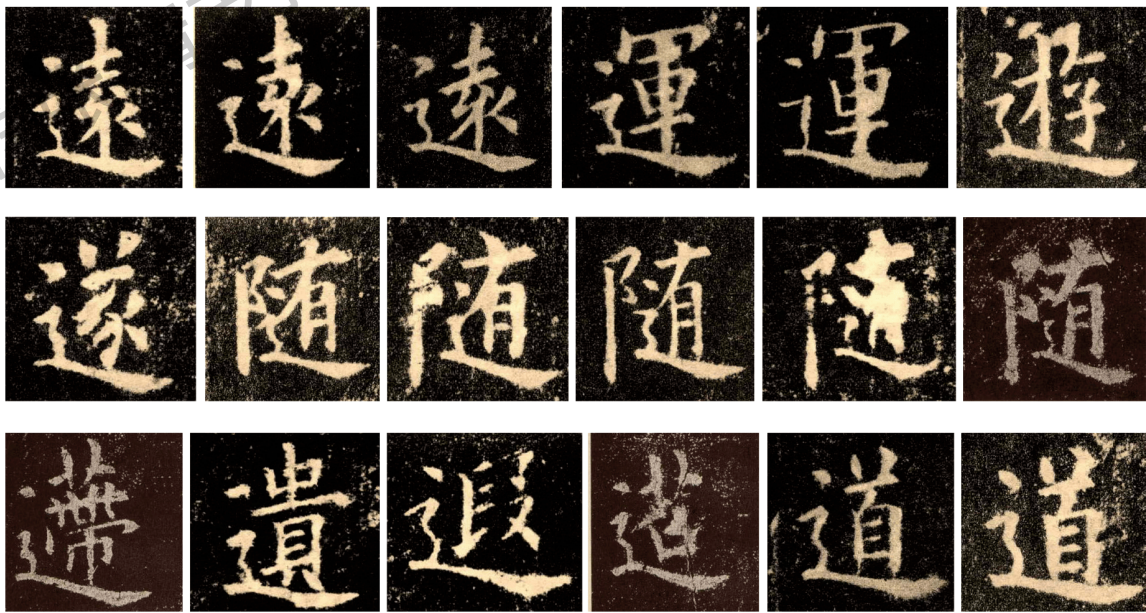 遠遠遠運運遊
遂随随随随随
遰遺遐蓮道道